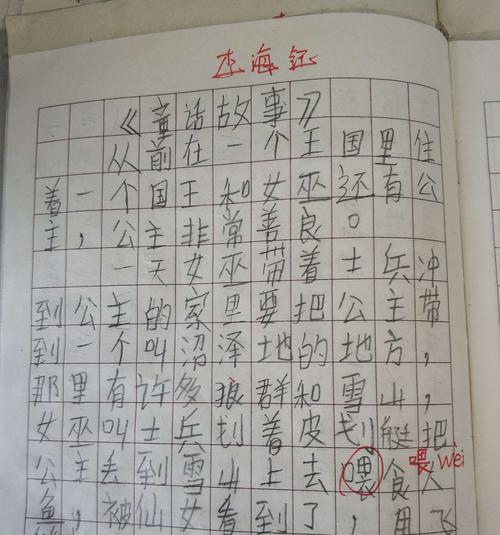 李海钰
《童话故事》
从前在一个王国里住
着一个国王和女巫还有公
主，公主非常善良。
一天女巫带着士兵冲
到公主的家里要把公主带
到一个叫沼泽地的地方，
那里有许多狼群和雪山，
女巫叫士兵划着皮划艇把
公主丢到雪山上去喂食人
喂 wèi
鱼，被仙女看到了，用飞